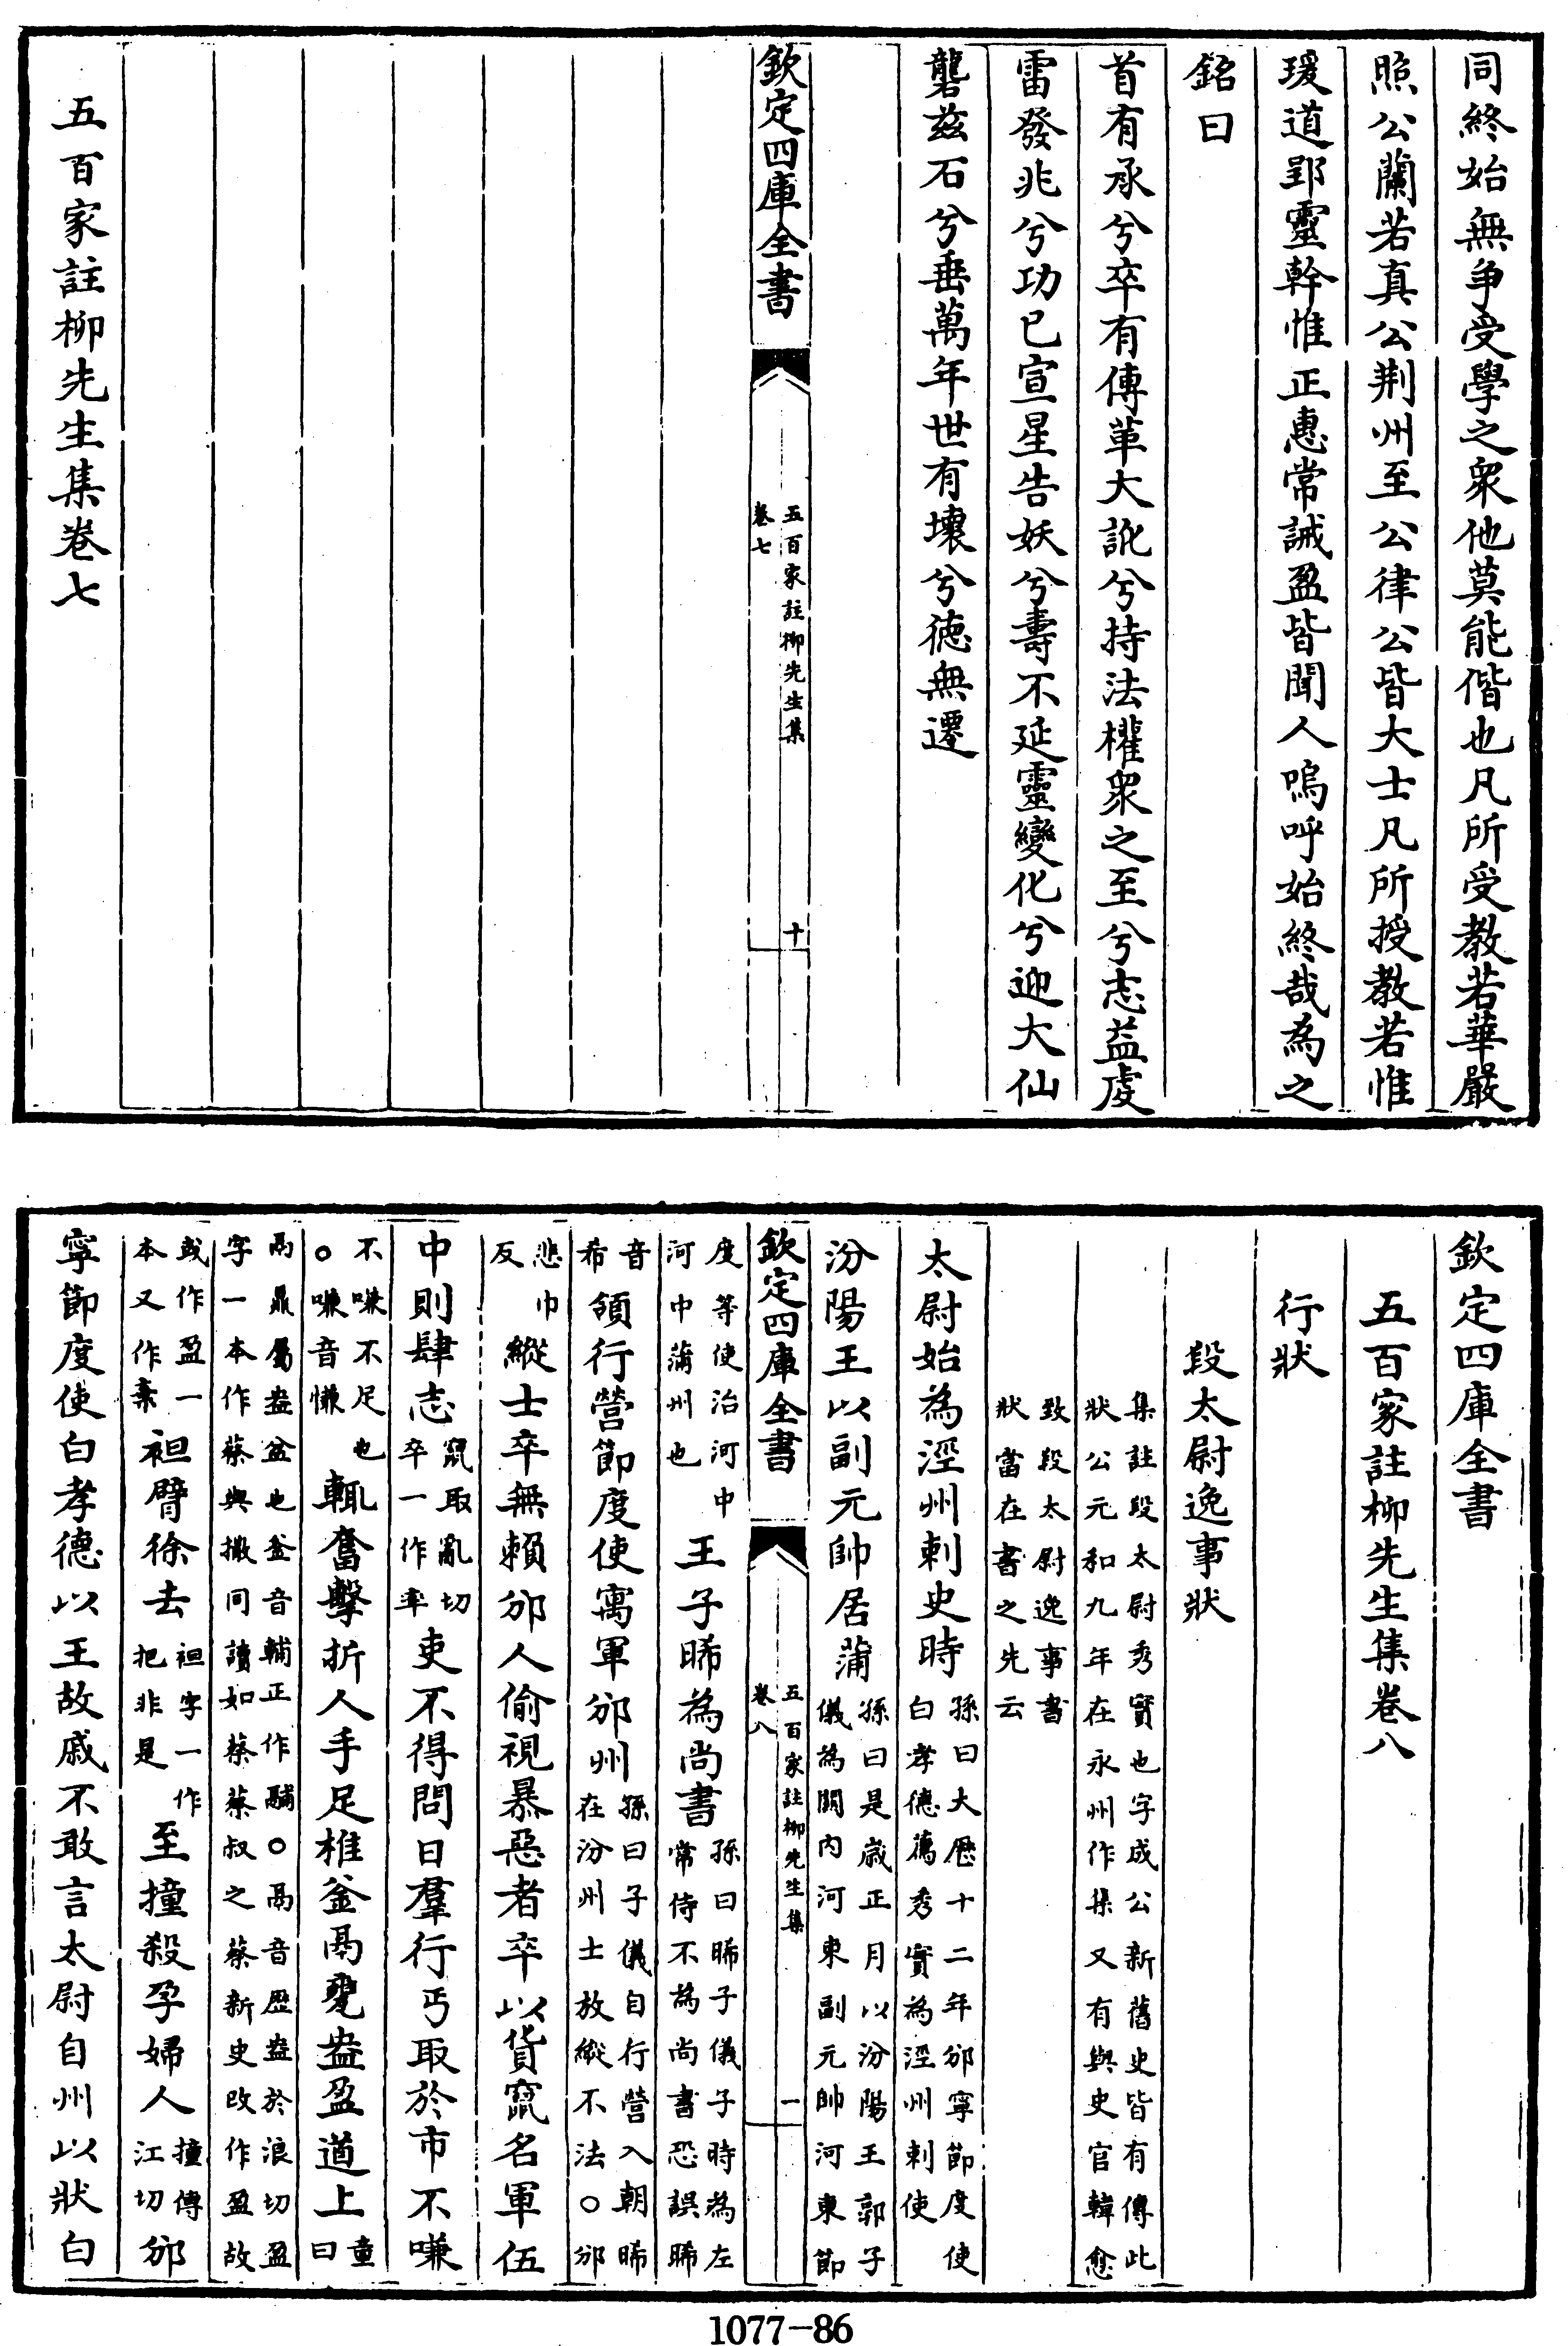 同終始無争受學之衆他莫能偕也凡所受教若華嚴
照公蘭若真公荆州至公律公皆大士凡所授教若惟
瑗道郢靈幹惟正惠常誡盈皆聞人嗚呼始終哉為之
銘曰
首有承兮卒有傳革大訛兮持法權衆之至兮志益虔
雷發兆兮功已宣星告妖兮壽不延靈變化兮迎大仙
礱兹石兮垂萬年世有壞兮德無遷
欽定四庫全書
五百家註柳先生集
卷七
十
五百家註柳先生集卷七
欽定四庫全書
五百家註柳先生集卷八
行狀
段太尉逸事狀
集註段太尉秀實也字成公新舊史皆有傳此
狀公元和九年在永州作集又有與史官韓愈
致段太尉逸事書
狀當在書之先云
太尉始為涇州刺史時孫曰大厯十二年邠寧節度使
白孝德薦秀實為涇州刺使
汾陽王以副元帥居蒲孫曰是歲正月以汾陽王郭子
儀為關内河東副元帥河東節
度等使治河中
河中蒲州也
王子晞為尚書孫曰晞子儀子時為左
常侍不為尚書恐誤晞
音
希
領行營節度使寓軍邠州孫曰子儀自行營入朝晞
在汾州士放縱不法○邠
悲巾
反
縱士卒無賴邠人偷視暴惡者卒以貨竄名軍伍
中則肆志竄取亂切
卒一作率
吏不得問日羣行丐取於市不嗛
不嗛不足也
○嗛音慊
輒奮擊折人手足椎釜鬲甕盎盈道上童
曰
鬲鼎屬盎盆也釜音輔正作鬴○鬲音歷盎於浪切盈
字一本作蔡與撒同讀如蔡蔡叔之蔡新史改作盈故
或作盈一
本又作棄
袒臂徐去袒字一作
把非是
至撞殺孕婦人撞傳
江切
邠
寧節度使白孝德以王故戚不敢言太尉自州以狀白
欽定四庫全書
五百家註柳先生集
卷八
一
1077-86